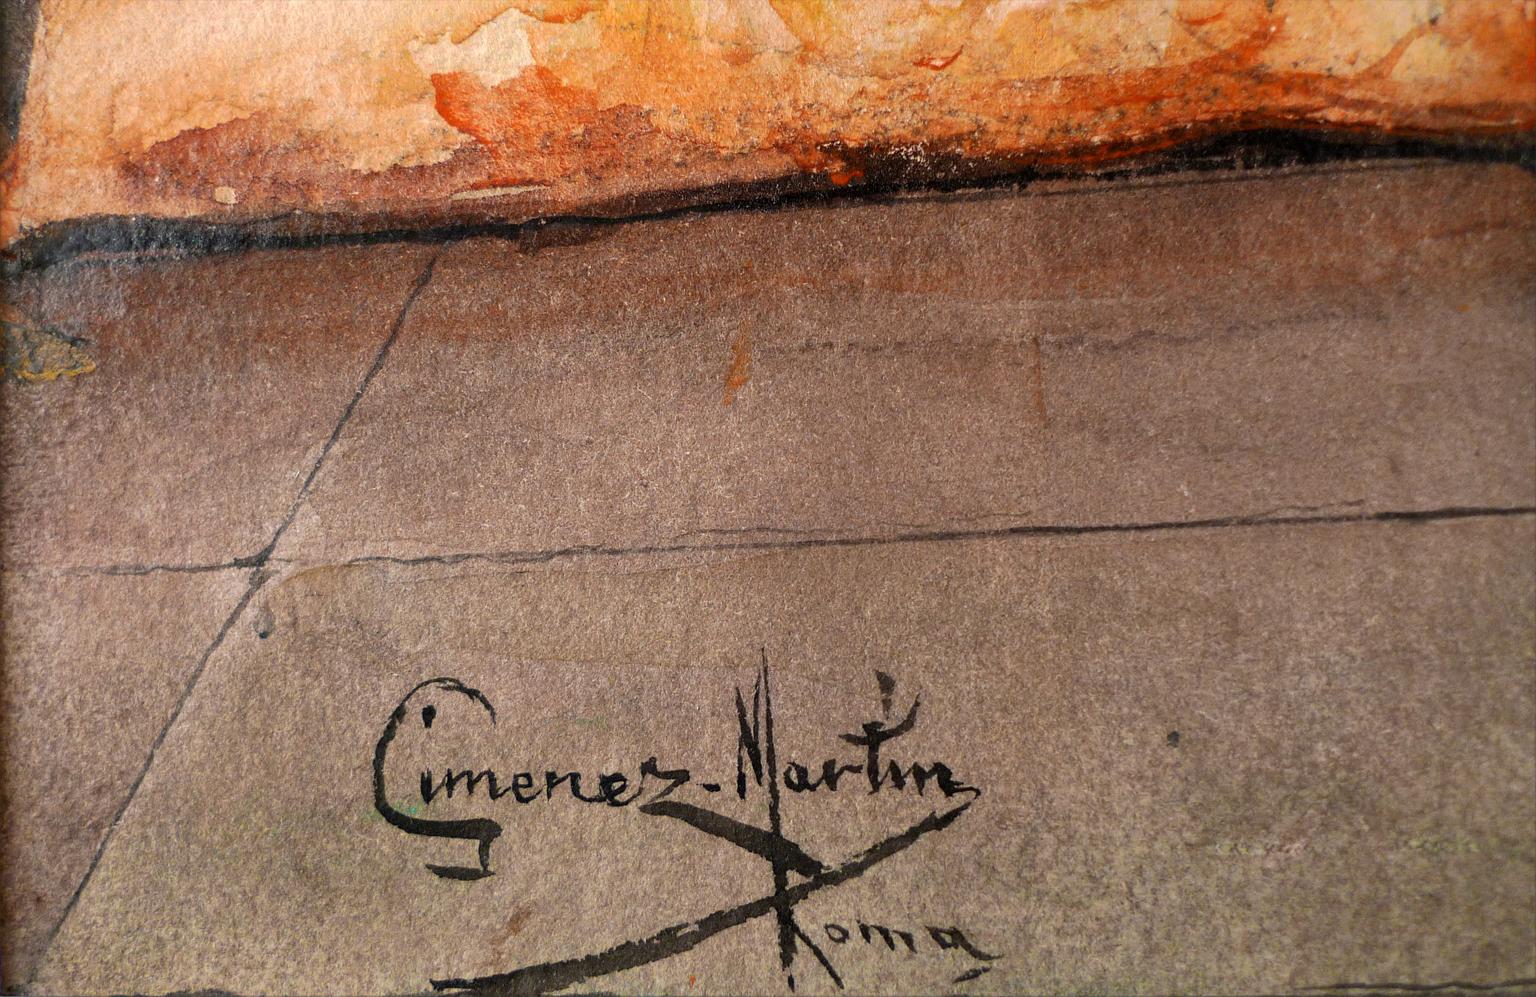 Gimenez-Martin
Roma